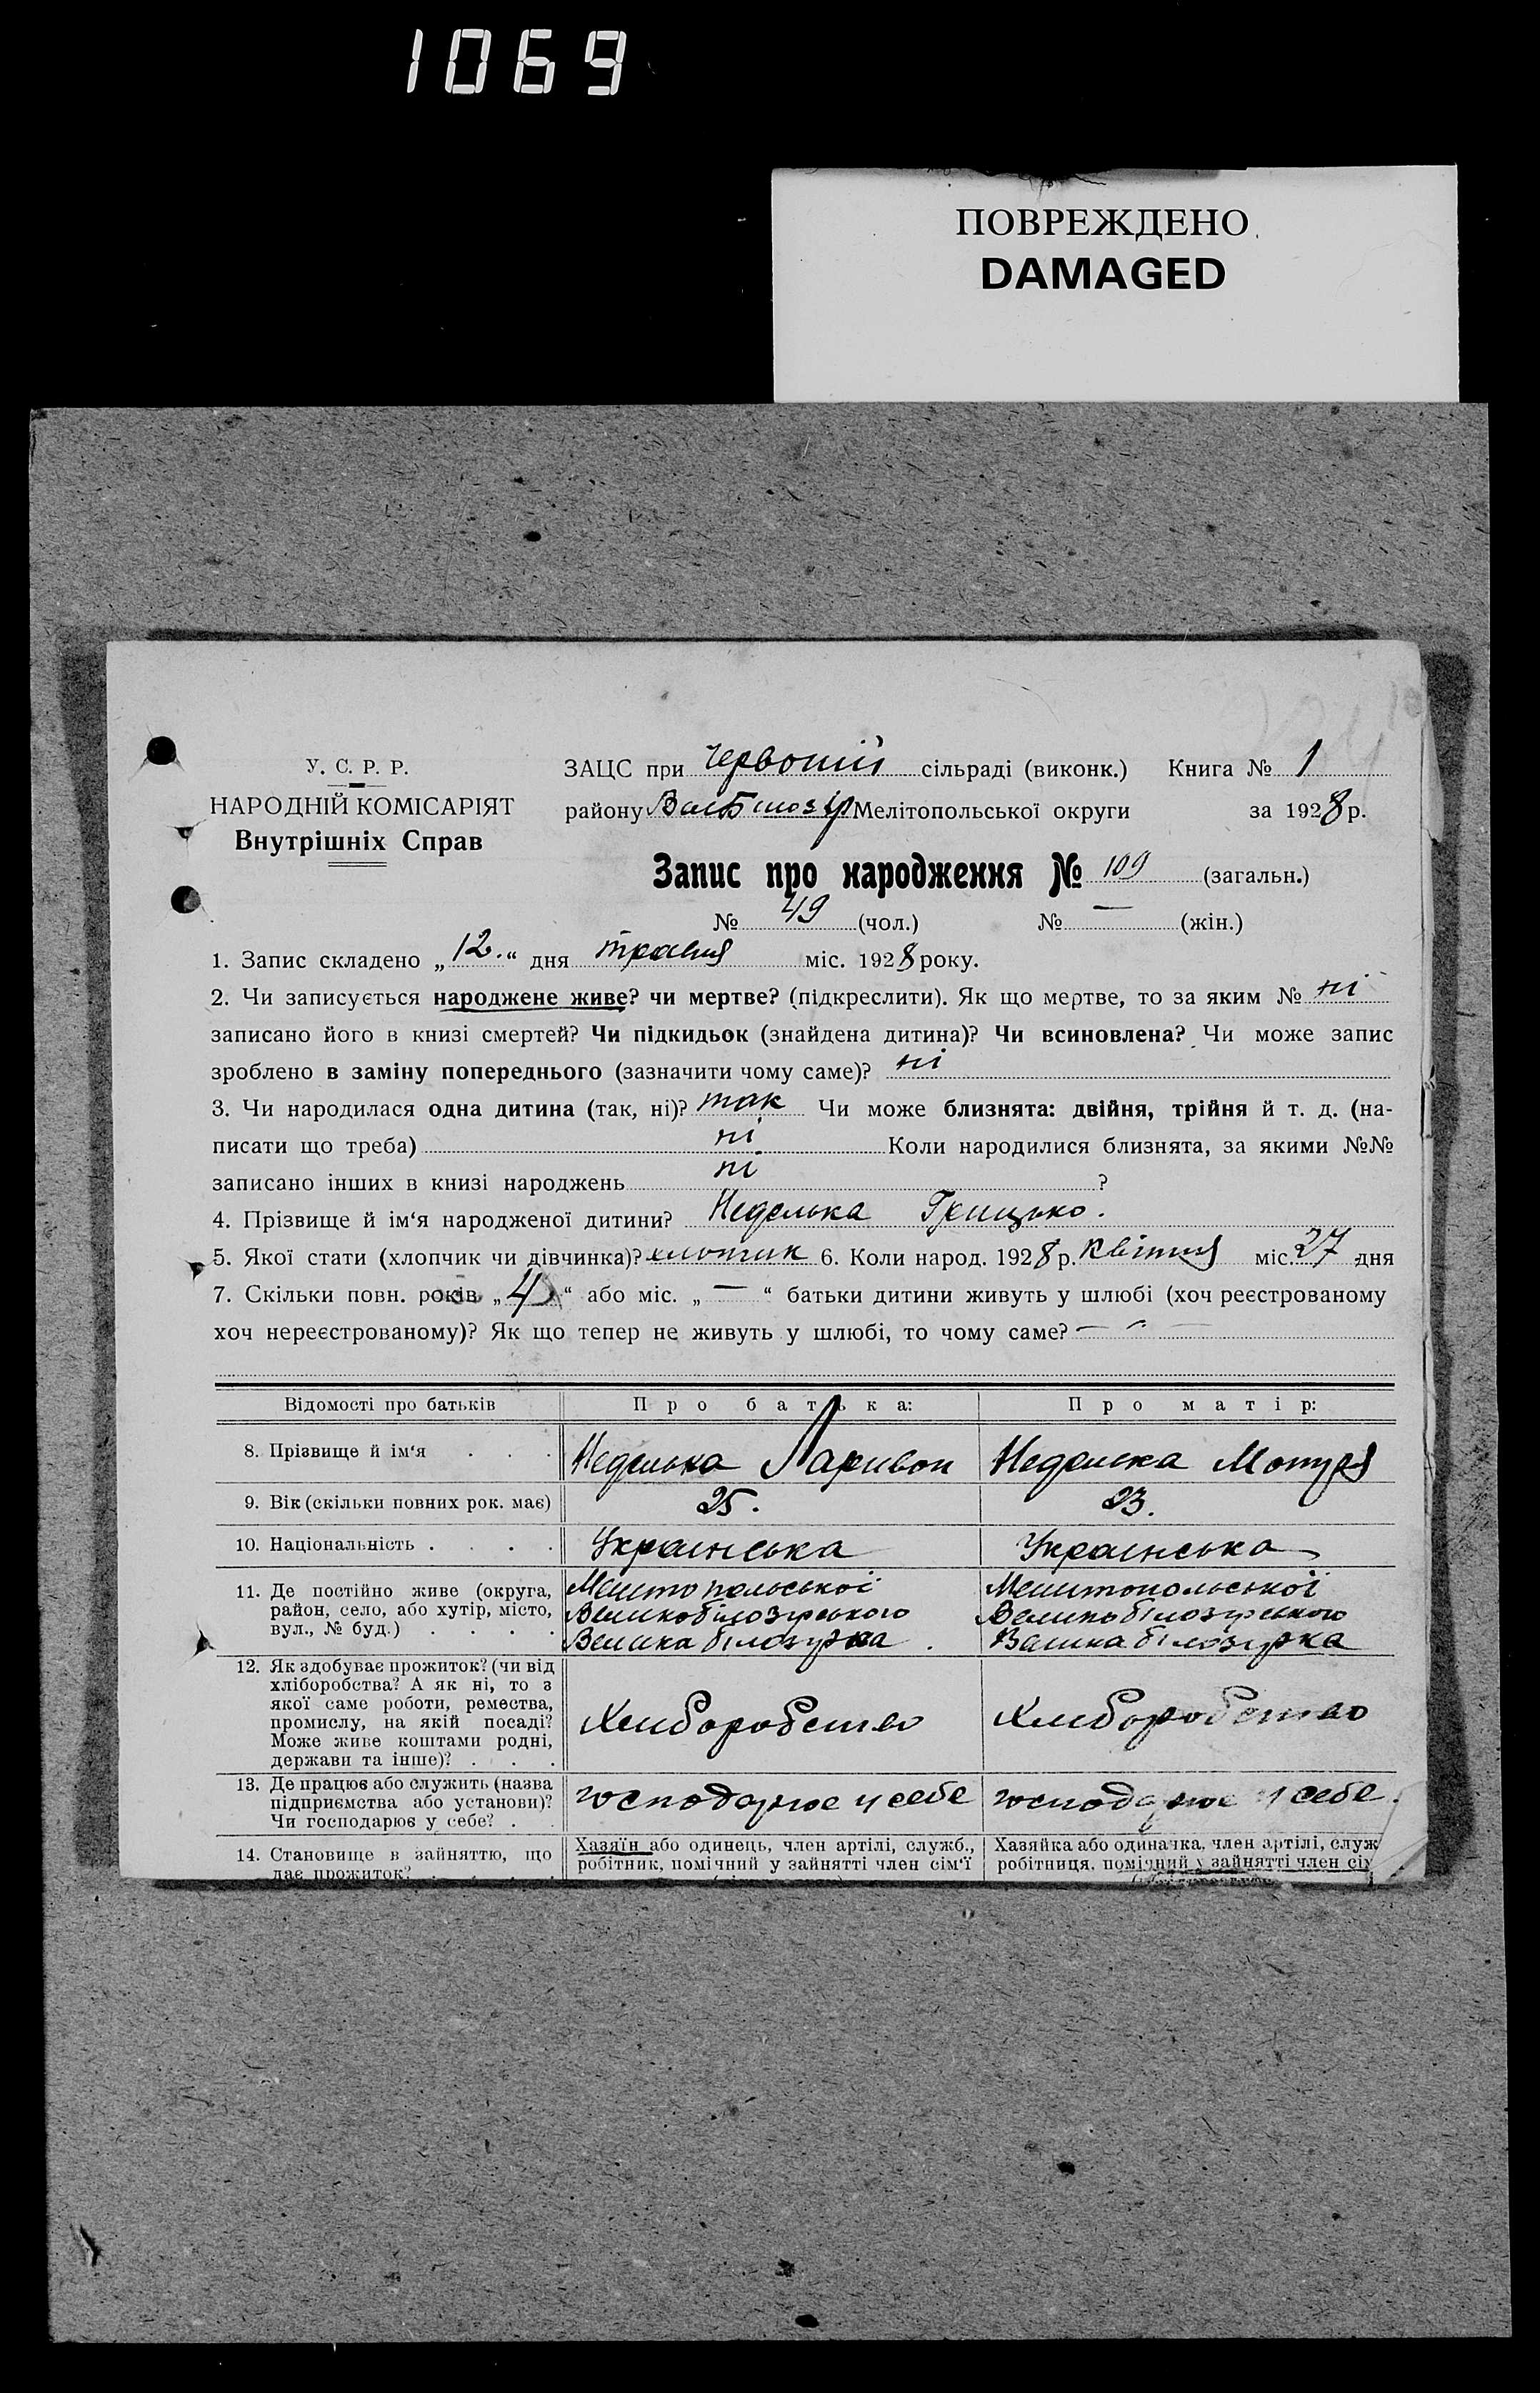 1069
ПОВРЕЖДЕНО
DAMAGED
У. С. Р. Р.
НАРОДНІЙ КОМІСАРІЯТ
Внутрішніх Справ
ЗАЦС при Червоній сільраді (виконк.) Книга № 1
району Мелітопольської округи за 1928 р.
Запис про народження № 109 (загальн.)
№ 49 (чол.) № — (жін.)
1. Запис складено „12.“ дня травня міс. 1928 року.
2. Чи записується народжене живе? чи мертве? (підкреслити). Як що мертве, то за яким № ні
записано його в книзі смертей? Чи підкидьок (знайдена дитина)? Чи всиновлена? Чи може запис
зроблено в заміну попереднього (зазначити чому саме)? ні
3. Чи народилася одна дитина (так, ні)? так Чи може близнята: двійня, трійня й т. д. (на-
писати що треба) ні Коли народилися близнята, за якими №№
записано інших в книзі народжень ні ?
4. Прізвище й ім‘я народженої дитини? Неделька Грицько.
5. Якої стати (хлопчик чи дівчинка)? хлопчик 6. Коли народ. 1928 р. квітня міс. 27 дня
7. Скільки повн. років „4“ або міс. „—“ батьки дитини живуть у шлюбі (хоч реєстрованому
хоч нереєстрованому)? Як що тепер не живуть у шлюбі, то чому саме? — — —
Відомості про батьків Про батька: Про матір:
8. Прізвище й ім‘я . . . Неделька Ларивон Неделька Мотря
9. Вік (скільки повних рок. має) 25. 23.
10. Національність . . . . Українська Українська
11. Де постійно живе (округа, Мелитопольської Мелитопольської
район, село, або хутір, місто, Великобілозірського Великобілозірського
вул., № буд.) . . . . Велика білозірка . Велика білозірка
12. Як здобуває прожиток? (чи від
хліборобства? А як ні, то з
якої саме роботи, ремества,
промислу, на якій посаді? Хлиборобство Хлиборобство
Може живе коштами родні,
держави та інше)? . . .
13. Де працює або служить (назва
підприємства або установи)? господарює у себе господарює у себе.
Чи господарює у себе? . .
14. Становище в зайняттю, що Хазяїн або одинець, член артілі, служб., Хазяйка або одиначка, член артілі, служ
дає прожиток? . . . . робітник, помічний у зайнятті член сім‘ї робітниця, помічний у зайнятті член сім